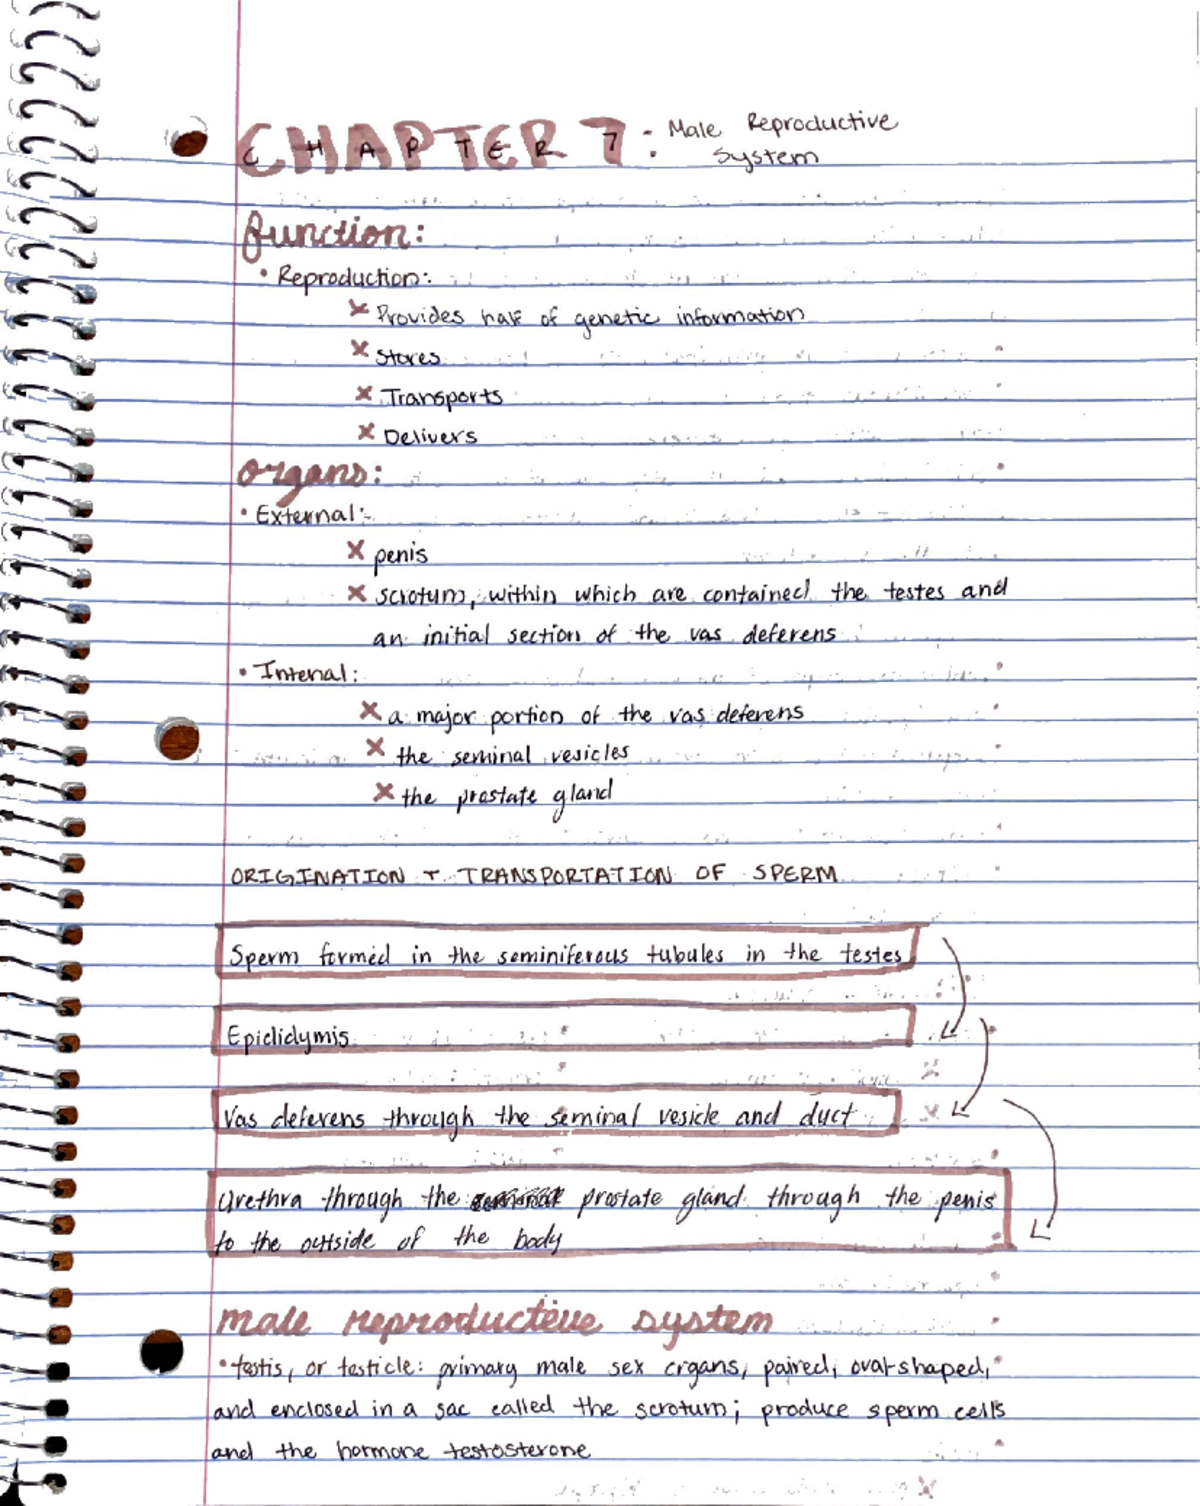 CHAPTER 7: Male Reproductive
System
function:
• Reproduction:
x Provides half of genetic information
x Stores
x Transports
x Delivers
organs:
• External:
x penis
x scrotum, within which are contained the testes and
an initial section of the vas deferens
• Internal:
x a major portion of the vas deferens
x the seminal vesicles
x the prostate gland
ORIGINATION + TRANSPORTATION OF SPERM
Sperm formed in the seminiferous tubules in the testes
Epididymis
Vas deferens through the seminal vesicle and duct
Urethra through the prostate gland through the penis
to the outside of the body
male reproductive system
• testis, or testicle: primary male sex organs, paired, oval-shaped,
and enclosed in a sac called the scrotum; produce sperm cells
and the hormone testosterone